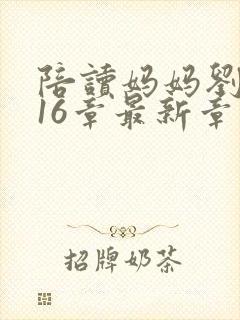 陪讀妈妈劉
16章最新章
招牌奶茶